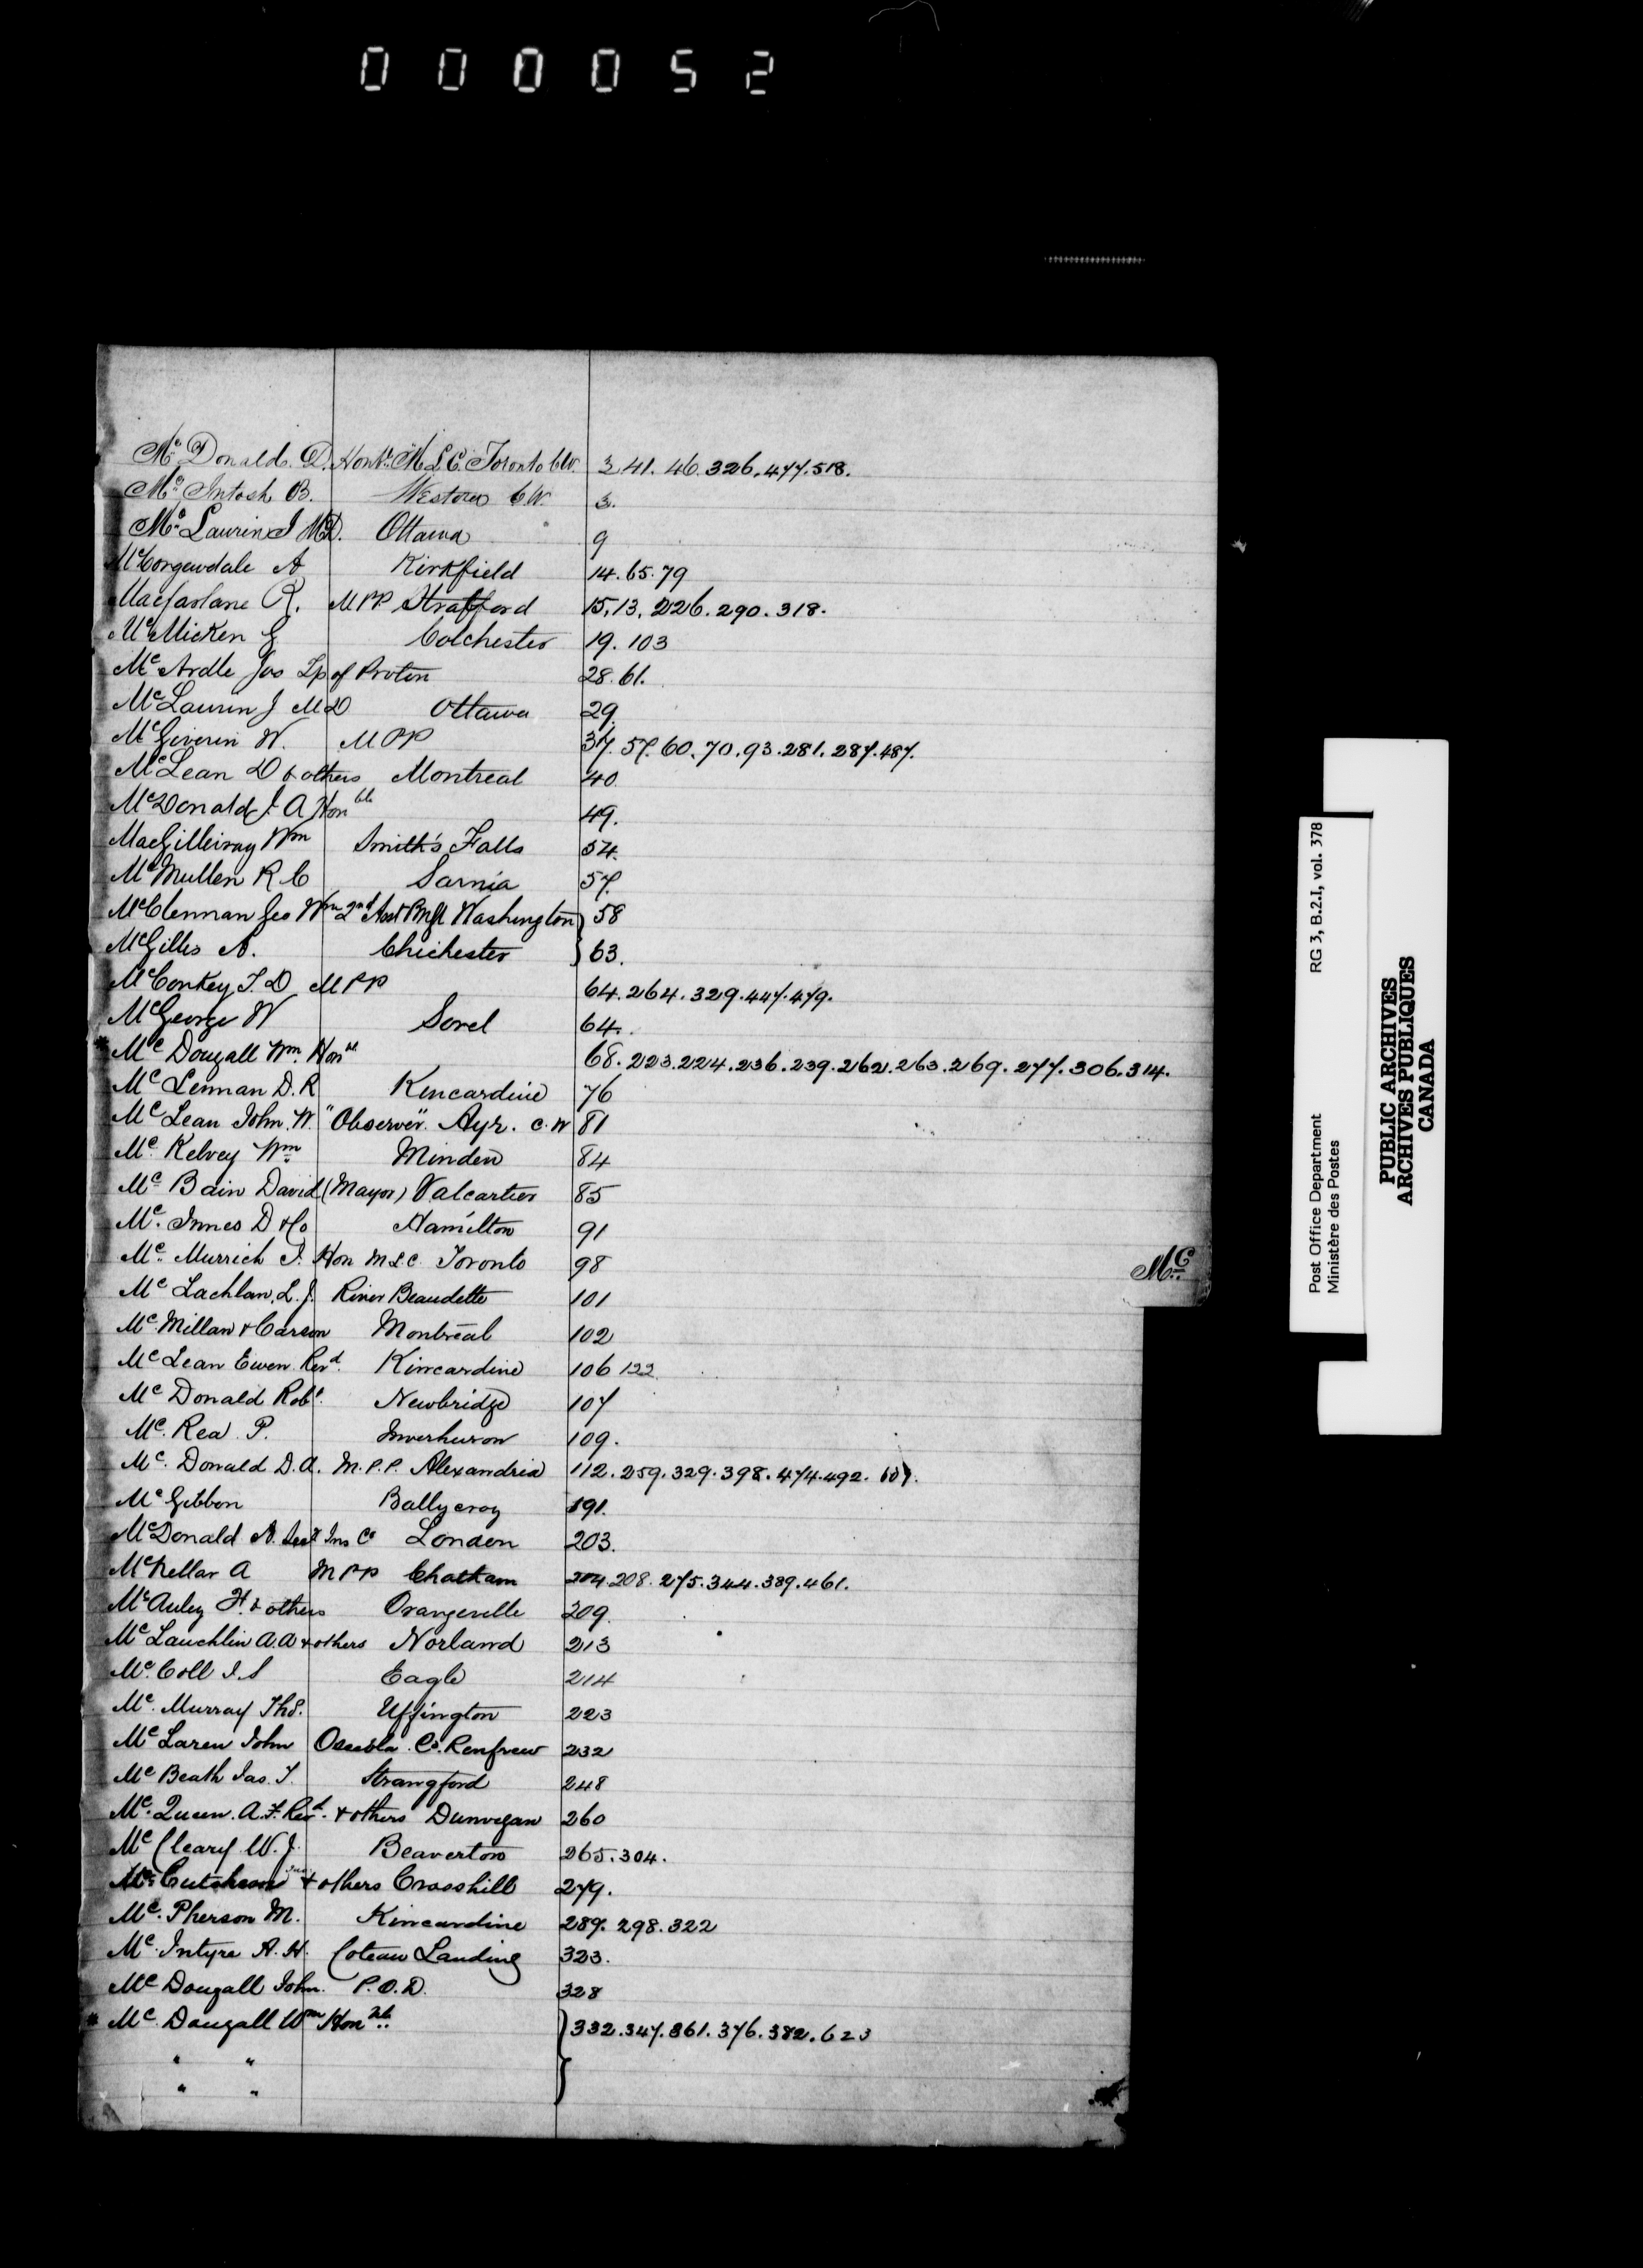 000052
McDonald D. Honble M.L.C. Toronto C.W. 3. 41. 46. 326. 477. 518.
McIntosh B. Weston C.W. 3.
McLaurin J MD. Ottawa 9
A Kirkfield 14. 65. 79
Macfarlane R. MPP Stratford 15. 13. 226. 290. 318.
McMicken G Colchester 19. 103
McArdle Jas Tp of Proton 28. 61.
McLaurin J MD Ottawa 29.
McGiverin W. MPP 37. 57. 60. 70. 93. 281. 287. 487.
McLean D & others Montreal 40.
McDonald J A Honble 49.
MacGilleivray Wm Smith's Falls 54.
McMullen R C Sarnia 57.
McClennan Geo Wm 2nd Asst PMGl Washington } 58
McGillis A. Chichester } 63.
McConkey T. D MPP 64. 264. 329. 447. 479.
McGeorge W Sorel 64.
* McDougall Wm. Honbl 68. 223. 224. 236. 239. 262. 263. 269. 277. 306. 314.
McLennan D. R Kincardine 76
McLean John. W. "Observer" Ayr. C. W 81
Mc. Kelvey Wm Minden 84
Mc Bain David (Mayor) Valcartier 85
Mc. Innes D & Co Hamilton 91
Mc. Murrich J. Hon M.L.C. Toronto 98
Mc Lachlan, L. J. River Beaudette 101
Mc. Millan & Carson Montreal 102
Mc Lean Ewen Revd. Kincardine 106 122
Mc Donald Robt. Newbridge 107
Mc. Rea P. Inverhuron 109.
Mc. Donald D. A. M.P.P. Alexandria 112. 259. 329. 398. 474. 492.
McGibbon Ballycroy 191.
McDonald A. Secy Ins Co London 203.
McKellar A MPP Chatham 204. 208. 275. 344. 389. 461.
McAuley H. & others Orangeville 209.
McLauchlin A. A & others Norland 213
Mc. Coll J. S Eagle 214
Mc. Murray Thos. Uffington 223
Mc Laren John Osceola Co. Renfrew 232
Mc Beath Jas. T. Strangford 248
Mc. Queen. A. F. Revd. & others Dunvegan 260
McCleary W. J. Beaverton 265. 304.
McCutcheon & others Crosshill 279.
Mc. Pherson M. Kincardine 289. 298. 322
Mc. Intyre A. H. Coteau Landing 323.
Mc Dougall John. P.O.D. 328
* Mc. Dougall Wm Honble. } 332. 347. 361. 376. 382. 623
" "
" "
Mc
Post Office Department RG 3, B.2.1, vol. 378
Ministère des Postes
PUBLIC ARCHIVES
ARCHIVES PUBLIQUES
CANADA